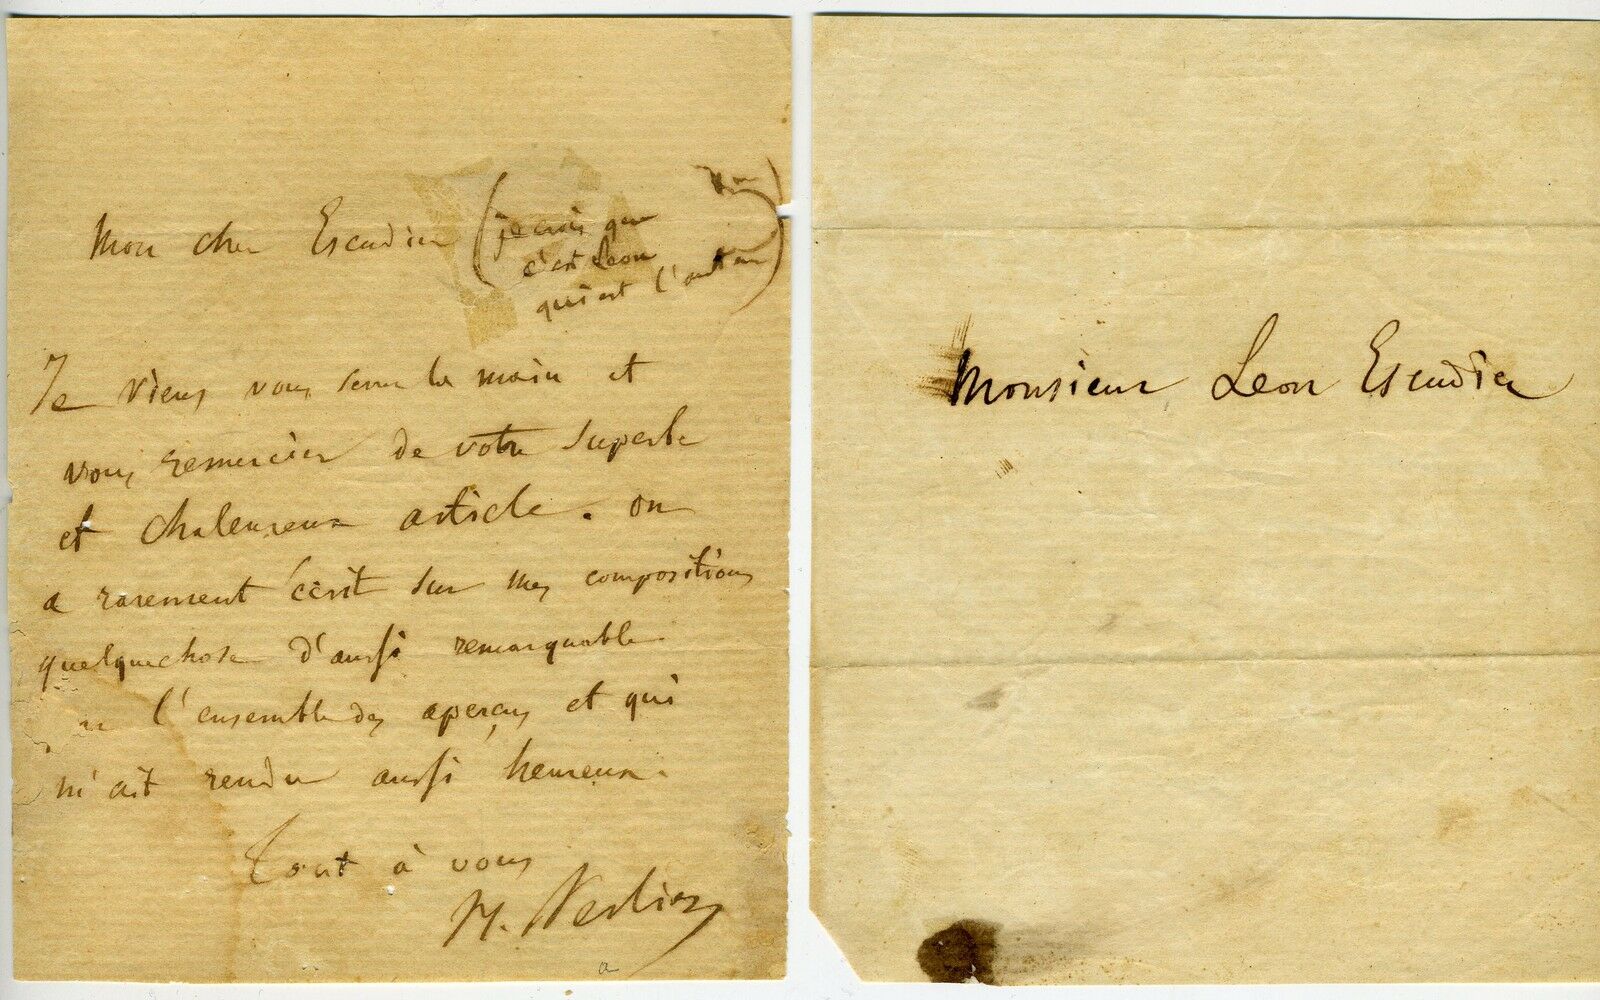 Mon cher Escudier (je crois que
c'est Leon
qui est l'auteur)
Je viens vous serrer la main et
vous remercier de votre superbe
et chaleureux article. on
a rarement écrit sur mes compositions
quelquechose d'aussi remarquable
l'ensemble des aperçus et qui
m'ait rendu aussi heureux.
Tout à vous
H. Berlioz
a
Monsieur Leon Escudier